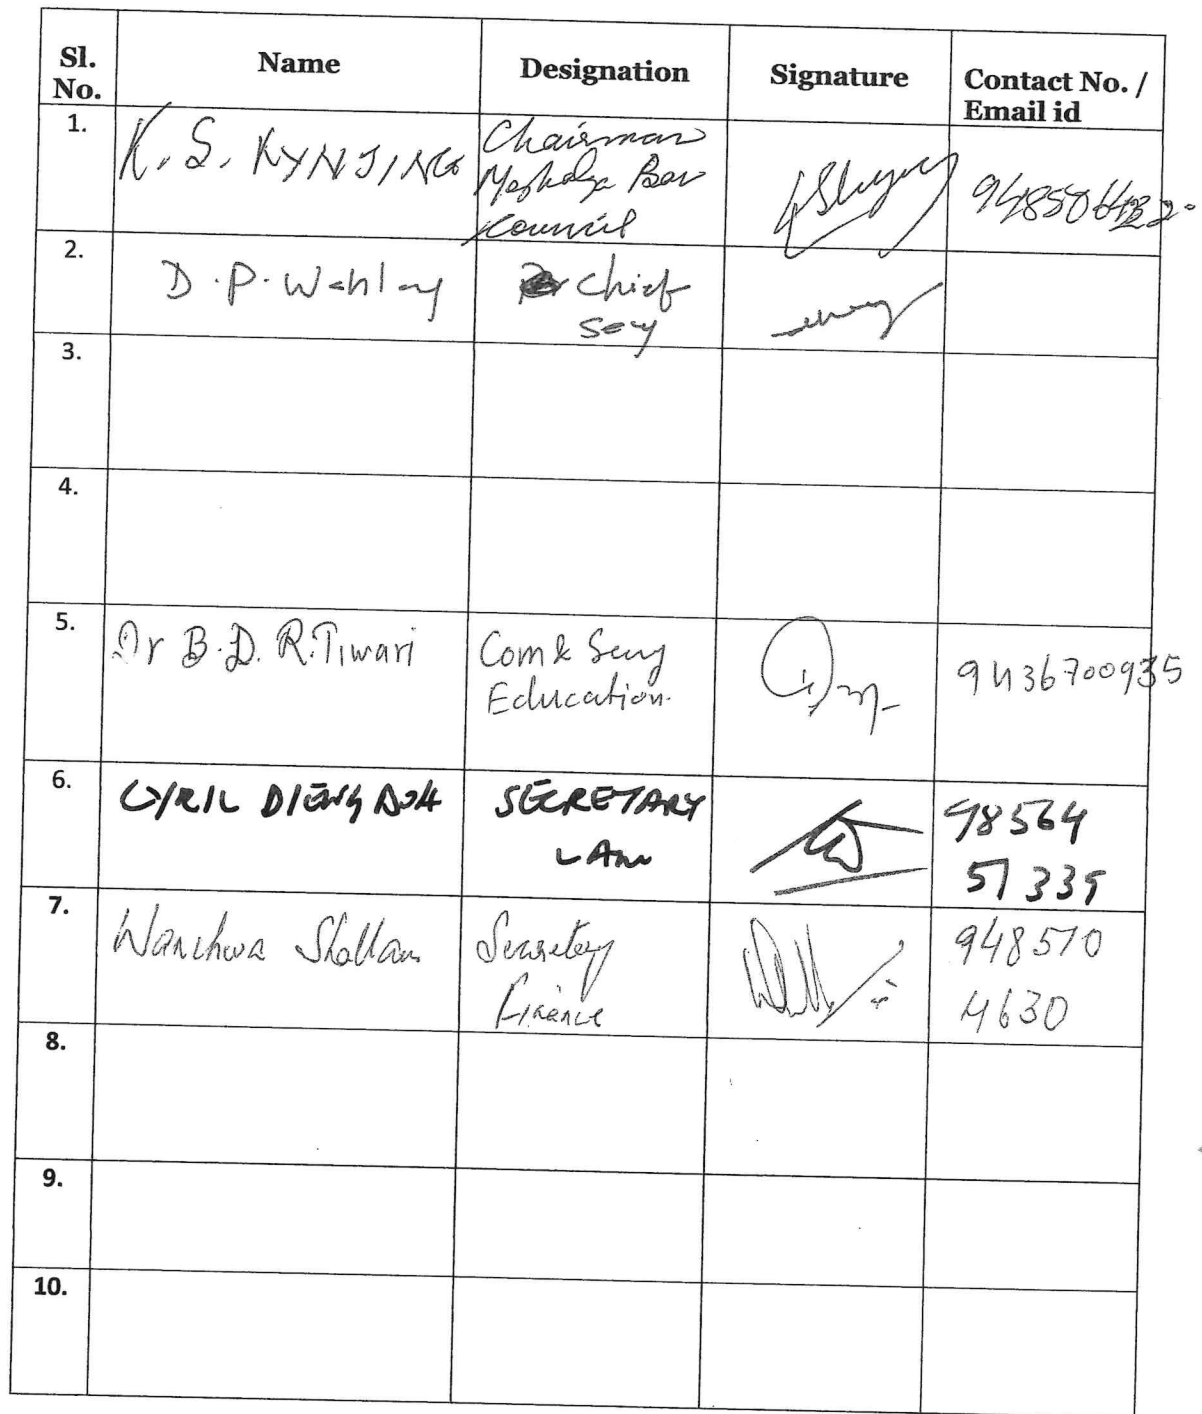 Sl. No. Name Designation Signature Contact No. / Email id
1. K. S. KYNJING Chairman
Meghalaya Bar
Council
2. D. P. Wahlang Chief
Secy
3.
4.
5. Dr B. D. R. Tiwari Com & Secy
Education. 9436700935
6. CYRIL DIENGDOH SECRETARY
LAW
98564
51335
7. Wanchwa Shallam Secretary
Finance
948510
4630
8.
9.
10.